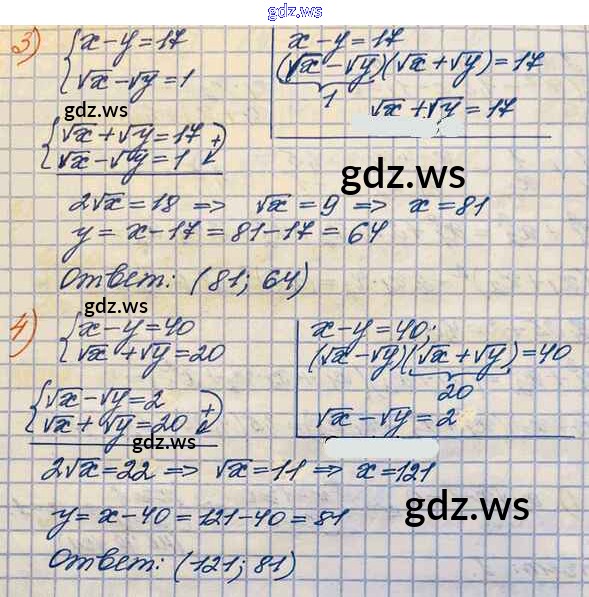 gdz.ws
3) { x - y = 17
√x - √y = 1
x - y = 17
(√x - √y)(√x + √y) = 17
1
√x + √y = 17
gdz.ws
{ √x + √y = 17
√x - √y = 1 +
gdz.ws
2√x = 18 => √x = 9 => x = 81
y = x - 17 = 81 - 17 = 64
Ответ: (81; 64)
gdz.ws
4) { x - y = 40
√x + √y = 20
x - y = 40;
(√x - √y)(√x + √y) = 40
20
√x - √y = 2
{ √x - √y = 2
√x + √y = 20 +
gdz.ws
2√x = 22 => √x = 11 => x = 121
y = x - 40 = 121 - 40 = 81
gdz.ws
Ответ: (121; 81)